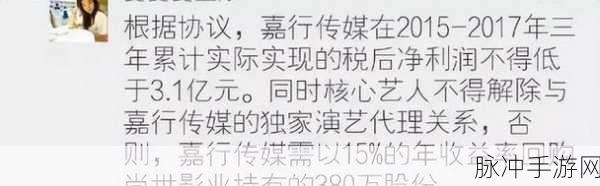 根据协议，嘉行传媒在2015-2017年三
年累计实际实现的税后净利润不得低
于3.1亿元。同时核心艺人不得解除与
嘉行传媒的独家演艺代理关系，否
则，嘉行传媒需以15%的年收益率回购
尚世影业持有的380万股份
脉冲手游网